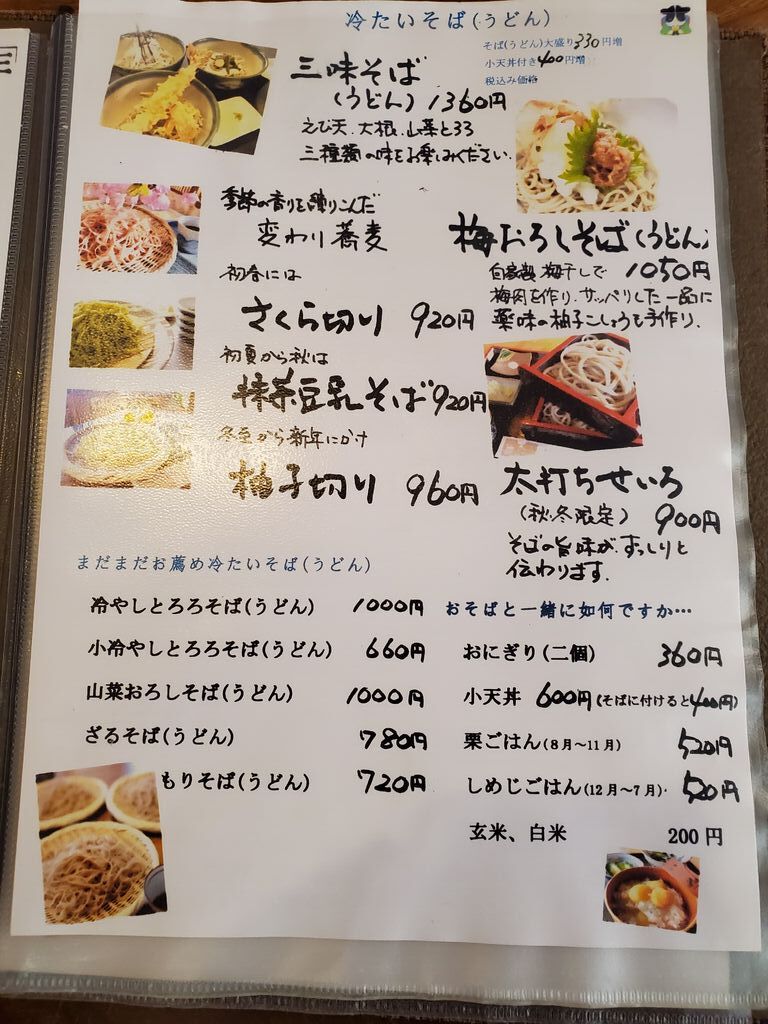 冷たいそば(うどん)
そば(うどん)大盛り330円増
小天丼付き400円増
税込み価格
三味そば
(うどん) 1360円
えび天、大根、山菜とろろ
三種類の味をお楽しみください.
季節の香りを練りこんだ
変わり蕎麦
初春には
さくら切り 920円
初夏から秋は
抹茶豆乳そば920円
冬至から新年にかけ
柚子切り 960円
梅おろしそば(うどん)
自家製梅干しで 1050円
梅肉を作り、サッパリした一品に
薬味の柚子こしょうも手作り.
太打ちせいろ
(秋.冬限定) 900円
そばの旨味が、ずっしりと
伝わります.
まだまだお薦め冷たいそば(うどん)
冷やしとろろそば(うどん) 1000円
小冷やしとろろそば(うどん) 660円
山菜おろしそば(うどん) 1000円
ざるそば(うどん) 780円
もりそば(うどん) 720円
おそばと一緒に如何ですか…
おにぎり(二個) 360円
小天丼 600円(そばに付けると400円)
栗ごはん(8月～11月) 520円
しめじごはん(12月～7月)· 520円
玄米、白米 200円